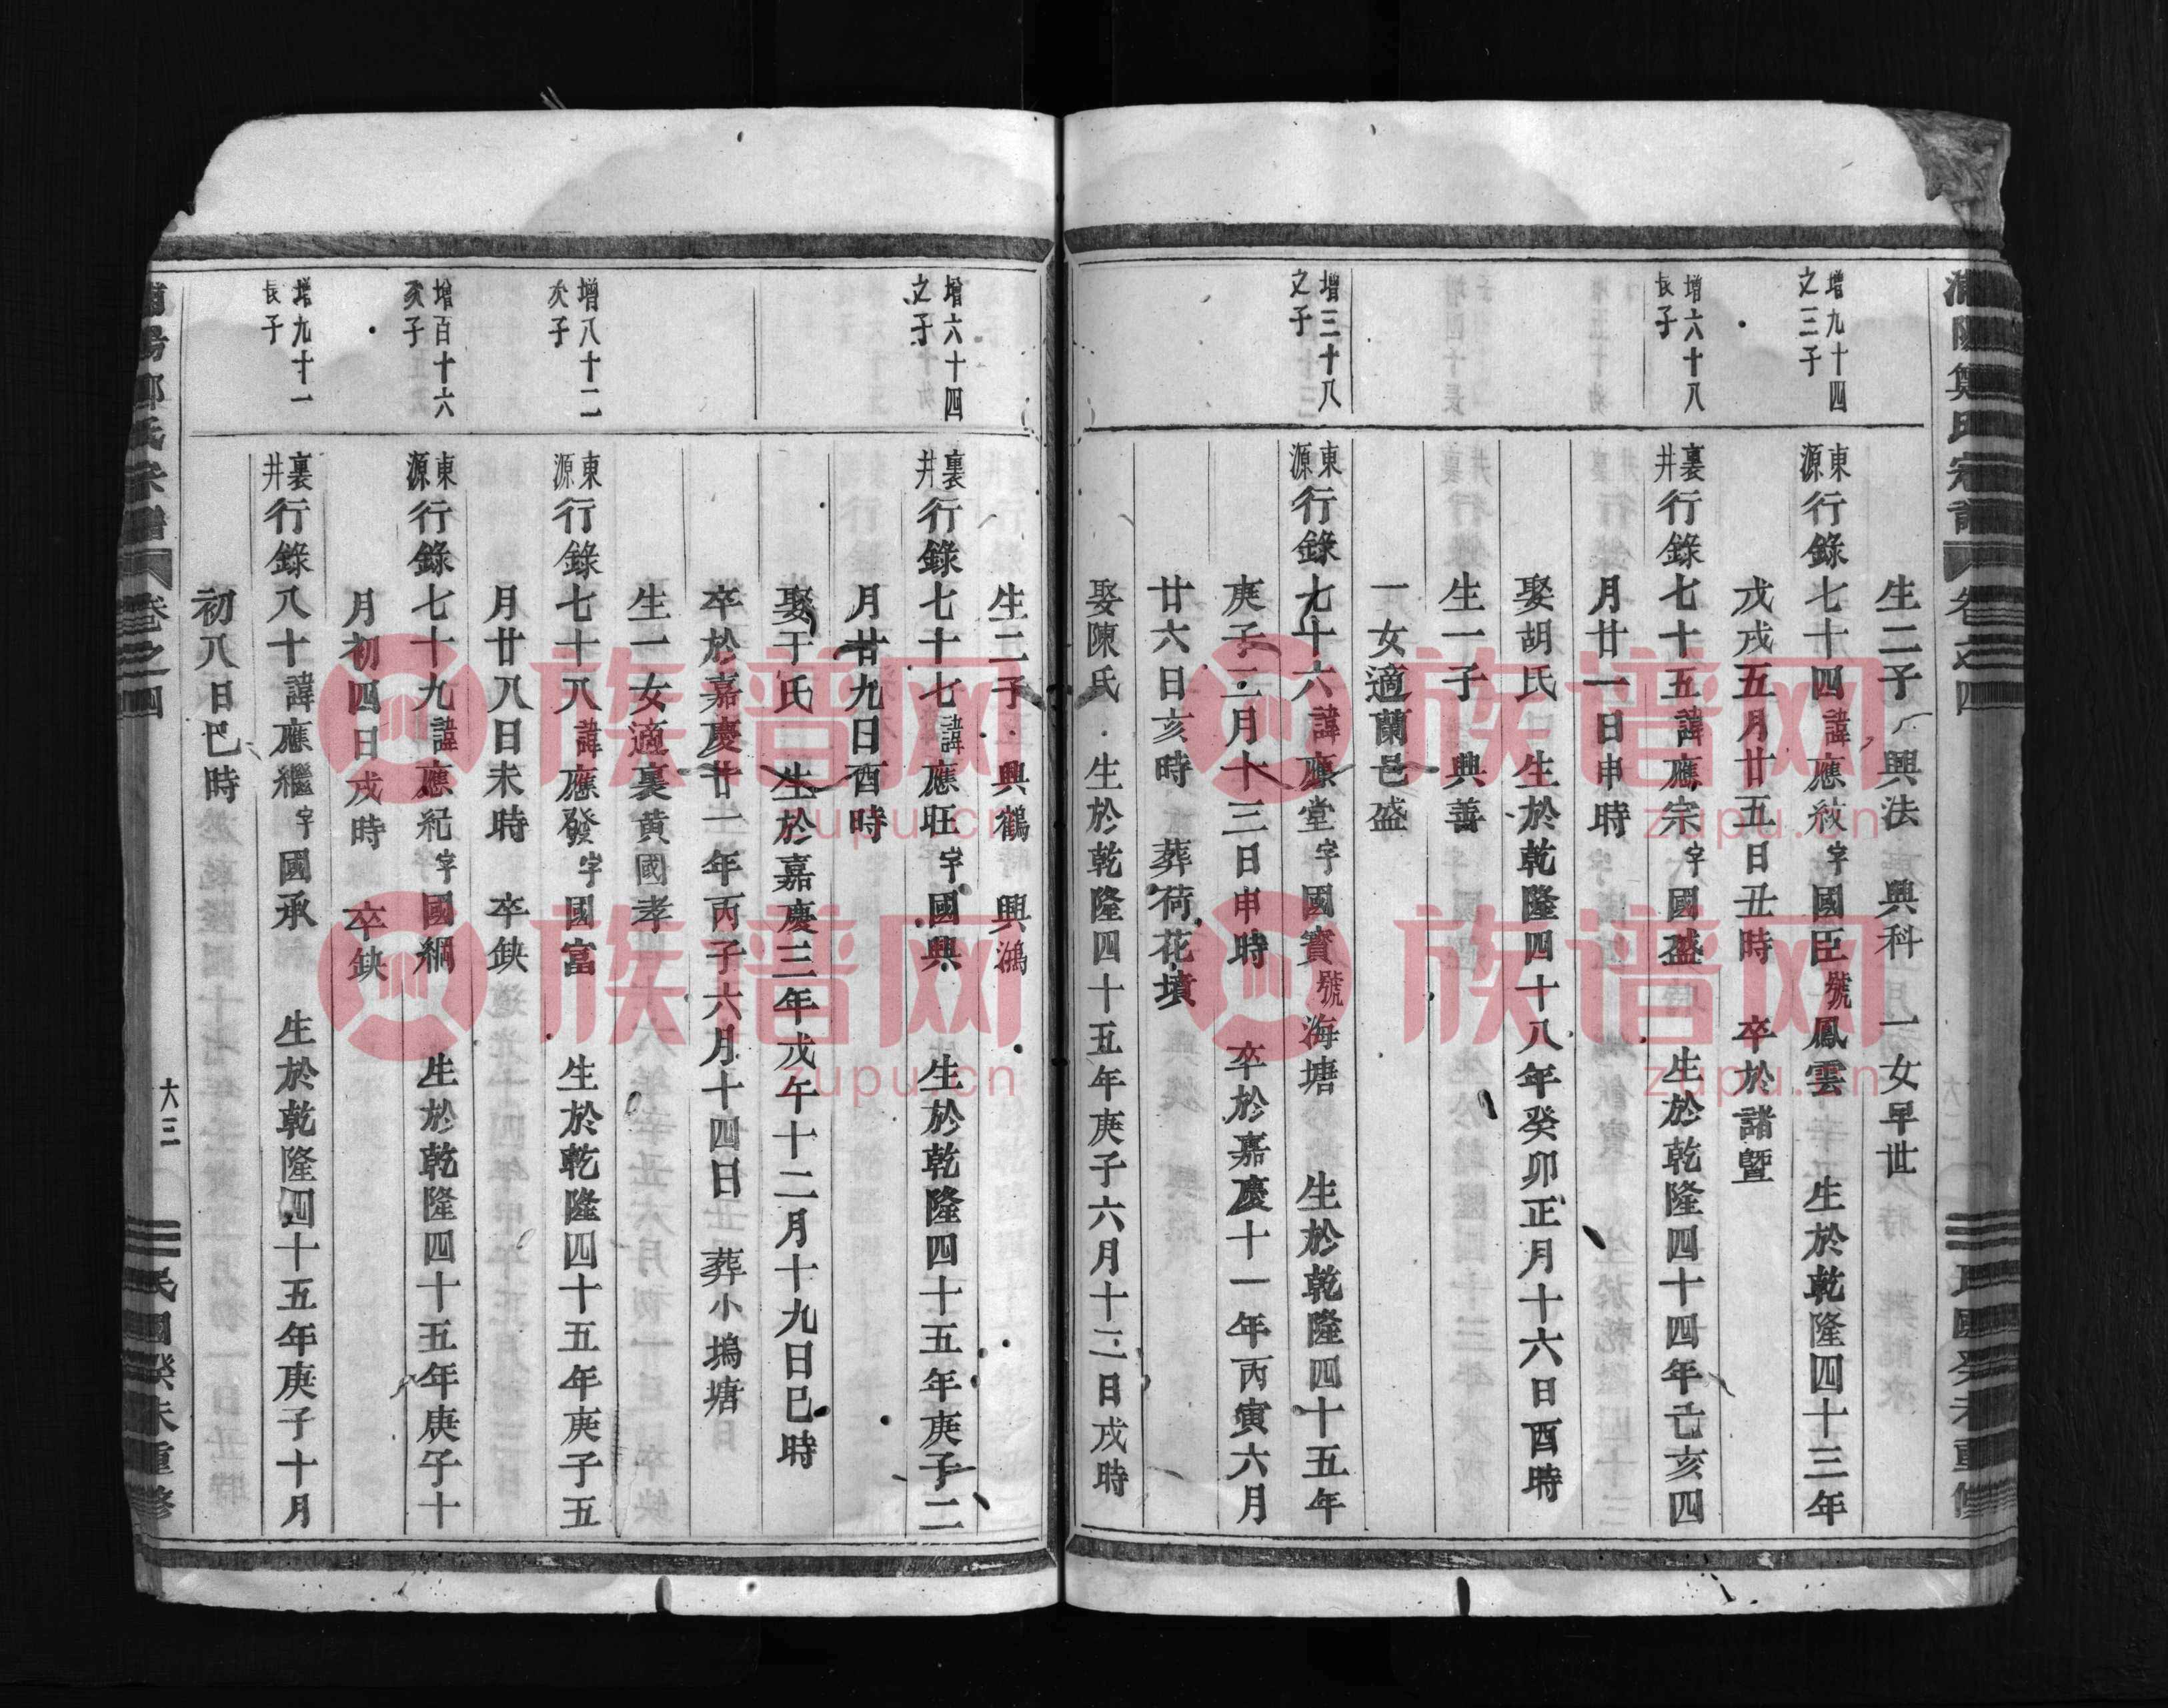 浦陽鄭氏宗譜 卷之四 民國癸未重修
生二子 興法 興科 一女早世
增九十四之三子
東源行錄七十四諱應紋字國臣號鳳雲 生於乾隆四十三年
戊戌五月廿五日丑時 卒於諸暨
增六十八長子
裏井行錄七十五諱應宗字國盛 生於乾隆四十四年亡亥四
月廿一日申時
娶胡氏 生於乾隆四十八年癸卯正月十六日酉時
生一子 興善
一女適蘭邑盛
增三十八之子
東源行錄七十六諱應堂字國寶號海塘 生於乾隆四十五年
庚子二月十三日申時 卒於嘉慶十一年丙寅六月
廿六日亥時 葬荷花墳
娶陳氏 生於乾隆四十五年庚子六月十二日戌時
生二子 興鶴 興鴻
增六十四之子
裏井行錄七十七諱應旺字國興 生於乾隆四十五年庚子二
月廿九日酉時
娶于氏 生於嘉慶三年戊午十二月十九日巳時
卒於嘉慶廿一年丙子六月十四日 葬小塢塘
生一女適裏黃國孝
增八十二次子
東源行錄七十八諱應發字國富 生於乾隆四十五年庚子五
月廿八日未時 卒缺
增百十六次子
東源行錄七十九諱應紀字國綱 生於乾隆四十五年庚子十
月初四日戌時 卒缺
增九十一長子
裏井行錄八十諱應繼字國承 生於乾隆四十五年庚子十月
初八日巳時
浦陽鄭氏宗譜 卷之四 六三 民國癸未重修
族谱网
zupu.cn
族谱网
zupu.cn
族谱网
zupu.cn
族谱网
zupu.cn